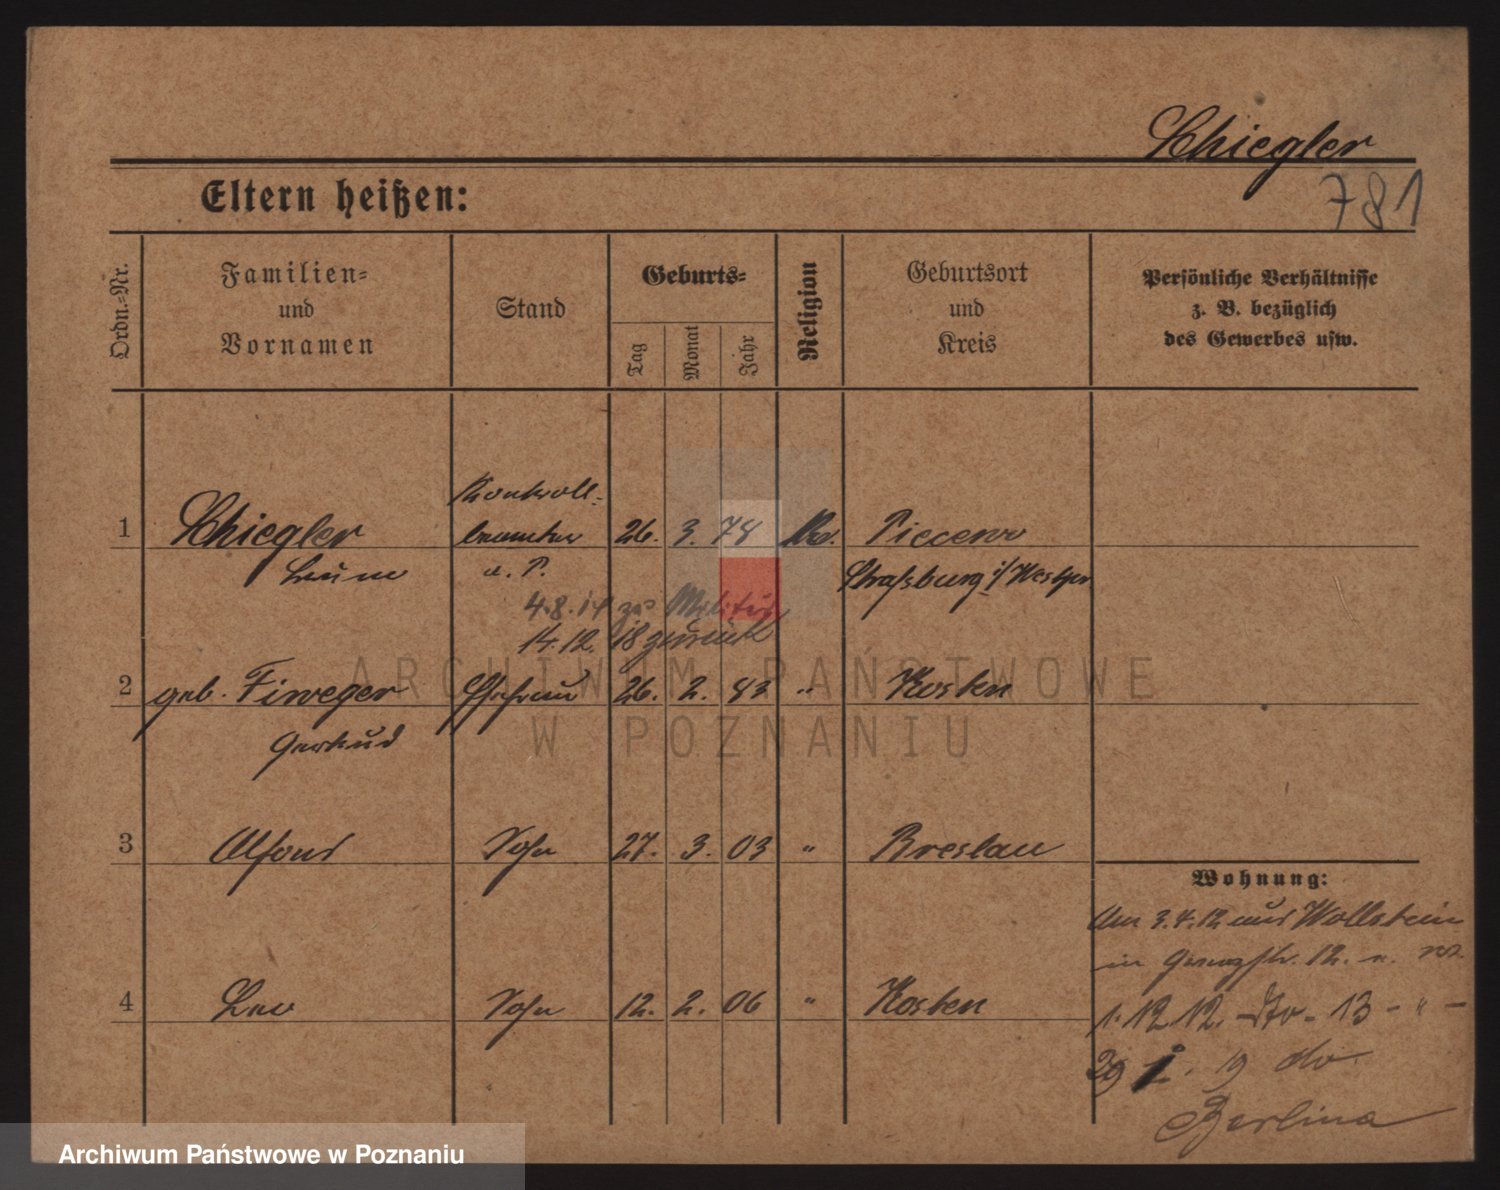 Schiegler
781
Eltern heißen:
Ordn.=Nr.
Familien=
und
Vornamen
Stand
Geburts=
Tag
Monat
Jahr
Religion
Geburtsort
und
Kreis
Persönliche Verhältnisse
z. B. bezüglich
des Gewerbes usw.
Kontroll-
1 Schiegler beamter 26. 3. 78 Piecewo
a. P. Straßburg i/ Westpr
4.8.14 zu Militär
14.12. 18 zurück
2 geb. Fiweger Ehefrau 26. 2. 83 " Kosten
Gertrud
3 Alfons Sohn 27. 3. 03 " Breslau
Wohnung:
Am 3.4.12 aus Wollstein
in 12.
4 Leo Sohn 12. 2. 06 " Kosten
1. 12 12. 13 - " -
29 1. 19 do
Berlina
ARCHIWUM PAŃSTWOWE
W POZNANIU
Archiwum Państwowe w Poznaniu